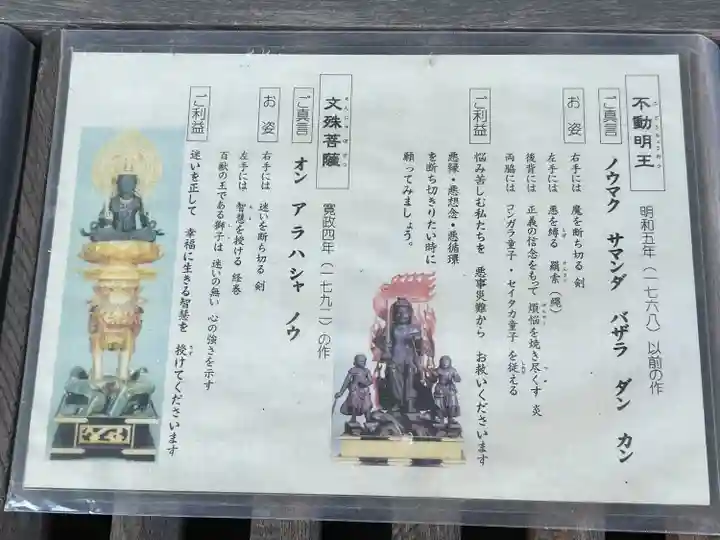 不動明王
明和五年（一七六八）以前の作
ご真言
ノウマク サマンダ バザラ ダン カン
お姿
右手には 魔を断ち切る 剣
左手には 悪を縛る 羂索（縄）
後背には 正義の信念をもって 煩悩を焼き尽くす 炎
両脇には コンガラ童子・セイタカ童子 を従える
ご利益
悩み苦しむ私たちを 悪事災難から お救いくださいます
悪縁・悪想念・悪循環
を断ち切りたい時に
願ってみましょう。
文殊菩薩
寛政四年（一七九二）の作
ご真言
オン アラハシャ ノウ
お姿
右手には 迷いを断ち切る 剣
左手には 智慧を授ける 経巻
百獣の王である獅子は 迷いの無い 心の強さを示す
ご利益
迷いを正して 幸福に生きる智慧を 授けてくださいます